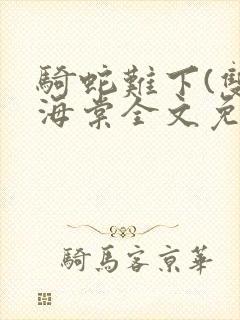 騎蛇難下(雙
海棠全文免
騎馬客京華